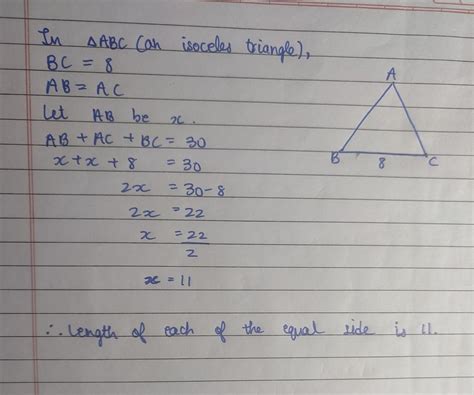 In △ABC (an isoceles triangle),
BC = 8
AB = AC
Let AB be x.
AB + AC + BC = 30
x + x + 8 = 30
2x = 30-8
2x = 22
x = 22
2
x = 11
∴ Length of each of the equal side is 11.
A
B
8
C